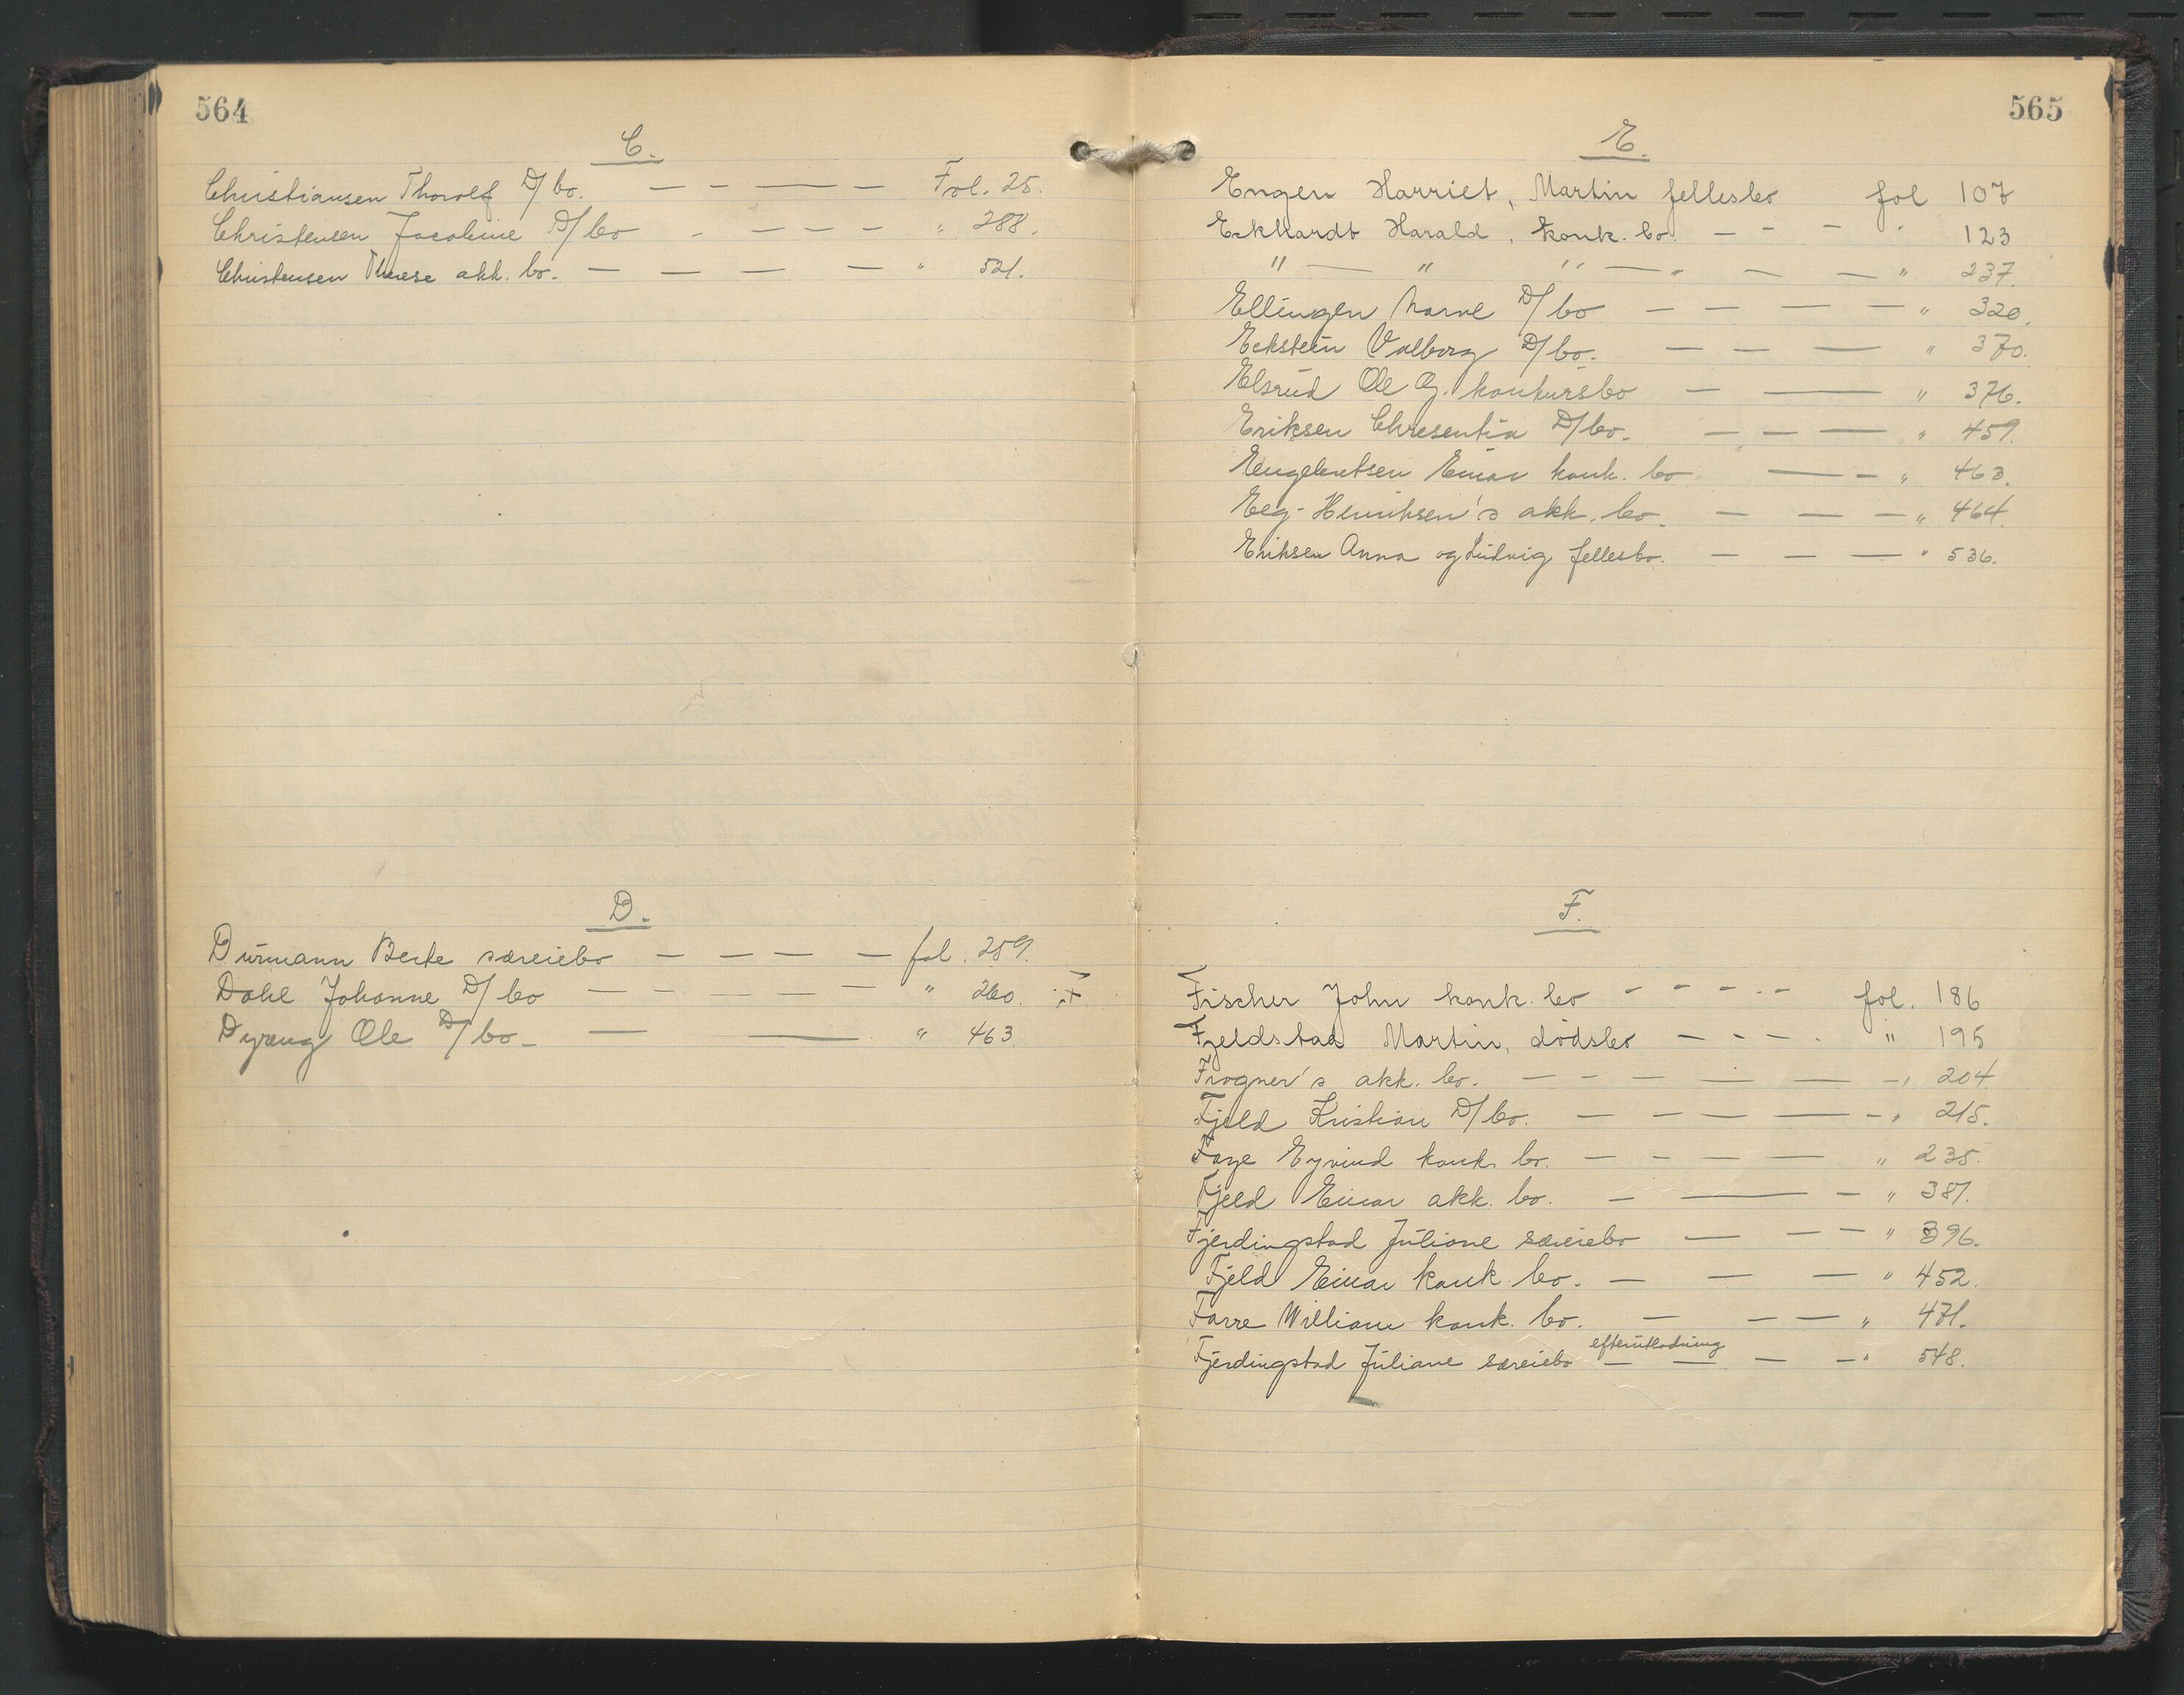 564
C.
Christiansen Thorolf D/bo. — - — — Fol. 25.
Christensen Jacobine D/bo - — — — " 288.
Christensen Therese akk. bo. — — — — " 521.
D.
Dürmann Berte særeiebo — — — — fol. 259.
Dahl Johanne D/bo — — — — — " 260.
Dyreng Ole D/bo — — " 463.
565
E.
Engen Harriet, Martin fellesbo fol 107
Eckhardt Harald, konk. bo. — - - " 123
" — " " — " — — " 237.
Ellingen Marne D/bo — — — — " 320.
Eckstein Valborg D/bo. — — — " 370.
Elsrud Ole G. konkursbo — — " 376.
Eriksen Chresentia D/bo. — — — " 459.
Engelbretsen Einar konk. bo — - " 463.
Eeg-Henriksen's akk. bo. — — — " 464.
Eriksen Anna og Ludvig fellesbo. — — — " 536.
F.
Fischer John konk. bo - - - - - fol. 186
Fjeldstad Martin, dødsbo — - — . " 195
Frogner's akk. bo. — - — — — - " 204
Fjeld Kristian D/bo. — — — — - " 215.
Faye Eyvind konk. bo. — - — — " 235.
Fjeld Einar akk. bo. — — — " 387.
Fjerdingstad Juliane særeiebo — — — " 396.
Fjeld Einar konk. bo. — — — " 452.
Farre William konk. bo. — — — " 471.
Fjerdingstad Juliane særeiebo efterutlodning — — — — " 548.